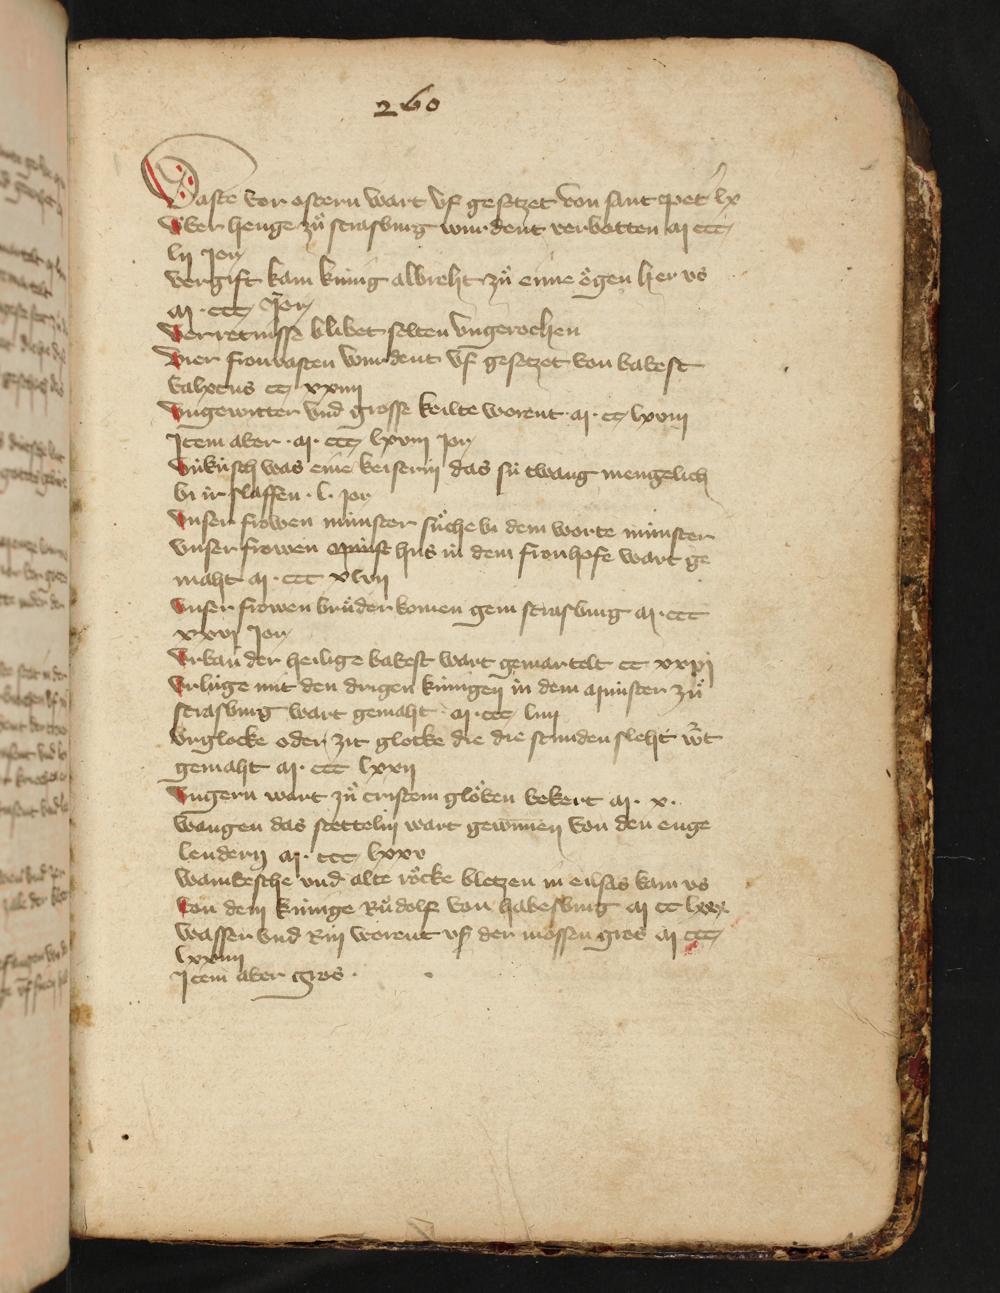 260
Vaste vor ostern wart vf gesetzet von sant peter lx
Vber henge zů strasburg wurdent verbotten M ccc
lij jor
vergift kam kúnig albreht zů eime ögen her vs
M · ccc jor
Verretnisse blibet selten vngerochen
Vier fronvasten wurdent vf gesetzet von babest
Calixtus cc xxiiij
Vngewitter vnd grosse kelte worent · M · cc lxviij
Jtem aber · M · ccc lxviij jor
Vnkúsch was eine keiserin das sú twang mengelich
bi ir slaffen · l · jor
Vnser frowen múnster sůche bi dem worte múnster
vnser frowen hus in dem fronhofe wart ge
maht M · ccc xlvij
Vnser frowen brůder komen gein strasburg M · ccc
xxvj jor
Vrban der heilige babest wart gemartelt cc xxvj
Vrlúge mit den drigen kúnigen in dem Múnster zů
strasburg wart gemaht · M · ccc liiij
Vrglocke oder zit glocke die die stunden sleht wart
gemaht M · ccc lxxij
Vngern wart zů cristem glöben bekert M · x ·
wangen das stettelin wart gewunnen von den enge
lendern M · ccc lxxv
wambesche vnd alte röcke bletzen in eilsas kam vs
von dem kúnige Růdolf von habesburg M cc lxxx
wasser vnd Rin worent vf der mossen gros M ccc
lxxiiij
Jtem aber gros ·